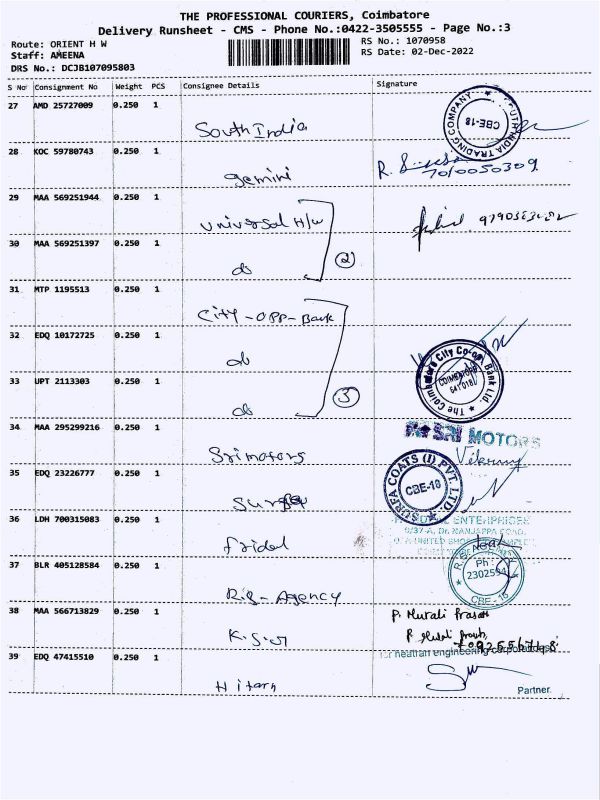 THE PROFESSIONAL COURIERS, Coimbatore
Delivery Runsheet - CMS - Phone No.:0422-3505555 - Page No.:3
Route: ORIENT H W
RS No.: 1070958
Staff: AMEENA
RS Date: 02-Dec-2022
DRS No.: DCJB107095803
S No Consignment No Weight PCS Consignee Details Signature
27 AMD 25727009 0.250 1 South India
SOUTH INDIA TRADING COMPANY
CBE-18
28 KOC 59780743 0.250 1 gemini
7010050309
29 MAA 569251944 0.250 1 Universal H/W
30 MAA 569251397 0.250 1 do
2
31 MTP 1195513 0.250 1 City-opp-Bank
32 EDQ 10172725 0.250 1 do
33 UPT 2113303 0.250 1 do
3
The Coimbatore City Co-op. Bank Ltd.
COIMBATORE
641018
34 MAA 295299216 0.250 1 Srimotors
SRI MOTORS
35 EDQ 23226777 0.250 1
SURFA COATS (I) PVT. LTD.
CBE-18
36 LDH 700315083 0.250 1
ENTERPRISES
37 BLR 405128584 0.250 1 R.g-Agency
Ph:
CBE-18
38 MAA 566713829 0.250 1
P. Murali Prasath
39 EDQ 47415510 0.250 1
engineering corporation
Partner